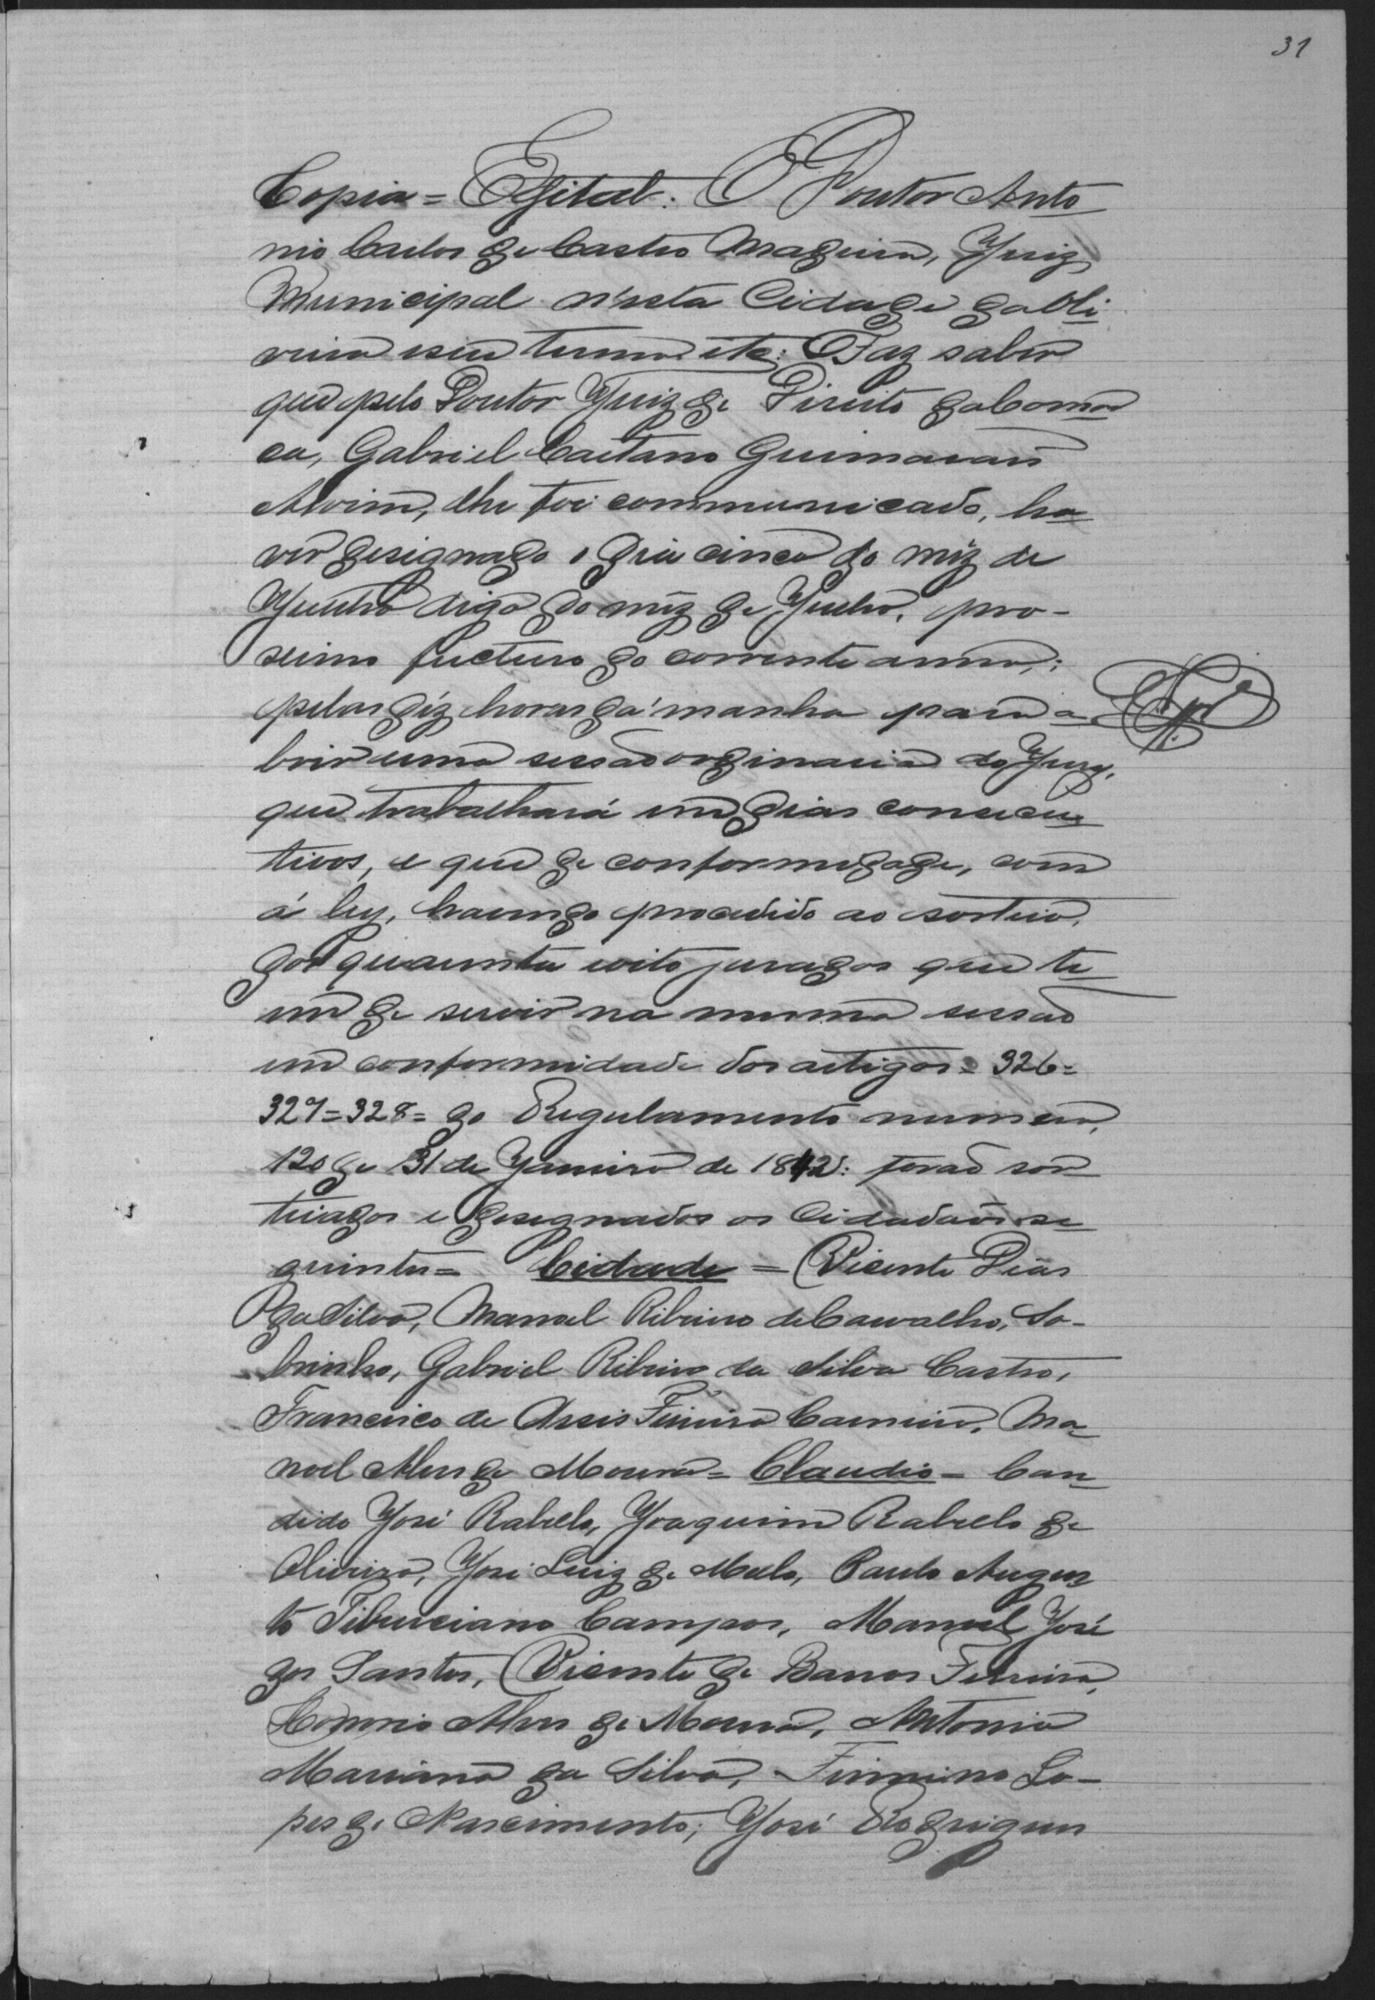 31
Copia = Edital: O Doutor Anto
nio Carlos de Castro Madeira, Juiz
Municipal n'esta Cidade da Oli
veira e seu termo etc: Faz saber
que pelo Doutor Juiz de Direito da Comar
ca, Gabriel Caetano Guimaraes
Alvim, lhe foi communicado, ha
ver designado o dia cinco do mez de
Junho digo do mez de Julho, pro-
seimo fucturo do corrente anno,:
pelas déz horas da manha para a
brir uma sessão ordinaria do Jury,
que trabalhará em dias consecu
tivos, e que de conformidade, com
á ley, havendo procedido ao sorteio,
dos quarenta e oito jurados que te
em de servir na mesma sessão
em conformidade dos artigos = 326 =
327 = 328 = do Regulamento numero,
120 de 31 de Janeiro de 1842: forão sor
teiados e desegnados os Cidadãos se
guintes = Cidade = Vicente Dias
da Silva, Manoel Ribeiro de Carvalho, So-
brinho, Gabriel Ribeiro da Silva Castro,
Francisco de Assis Ferreira Carneiro, Ma
noel Alves de Moura = Claudio = Can
dido José Rabello, Joaquim Rabello de
Oliveira, José Luiz de Mello, Paulo Augus
to Tiburciano Campos, Manoel José
dos Santos, Vicente de Barros Ferreira,
Honorio Alves de Moura, Antonio
Mariano da Silva, Firmino Lo-
pes de Nascimento, José Rodrigues